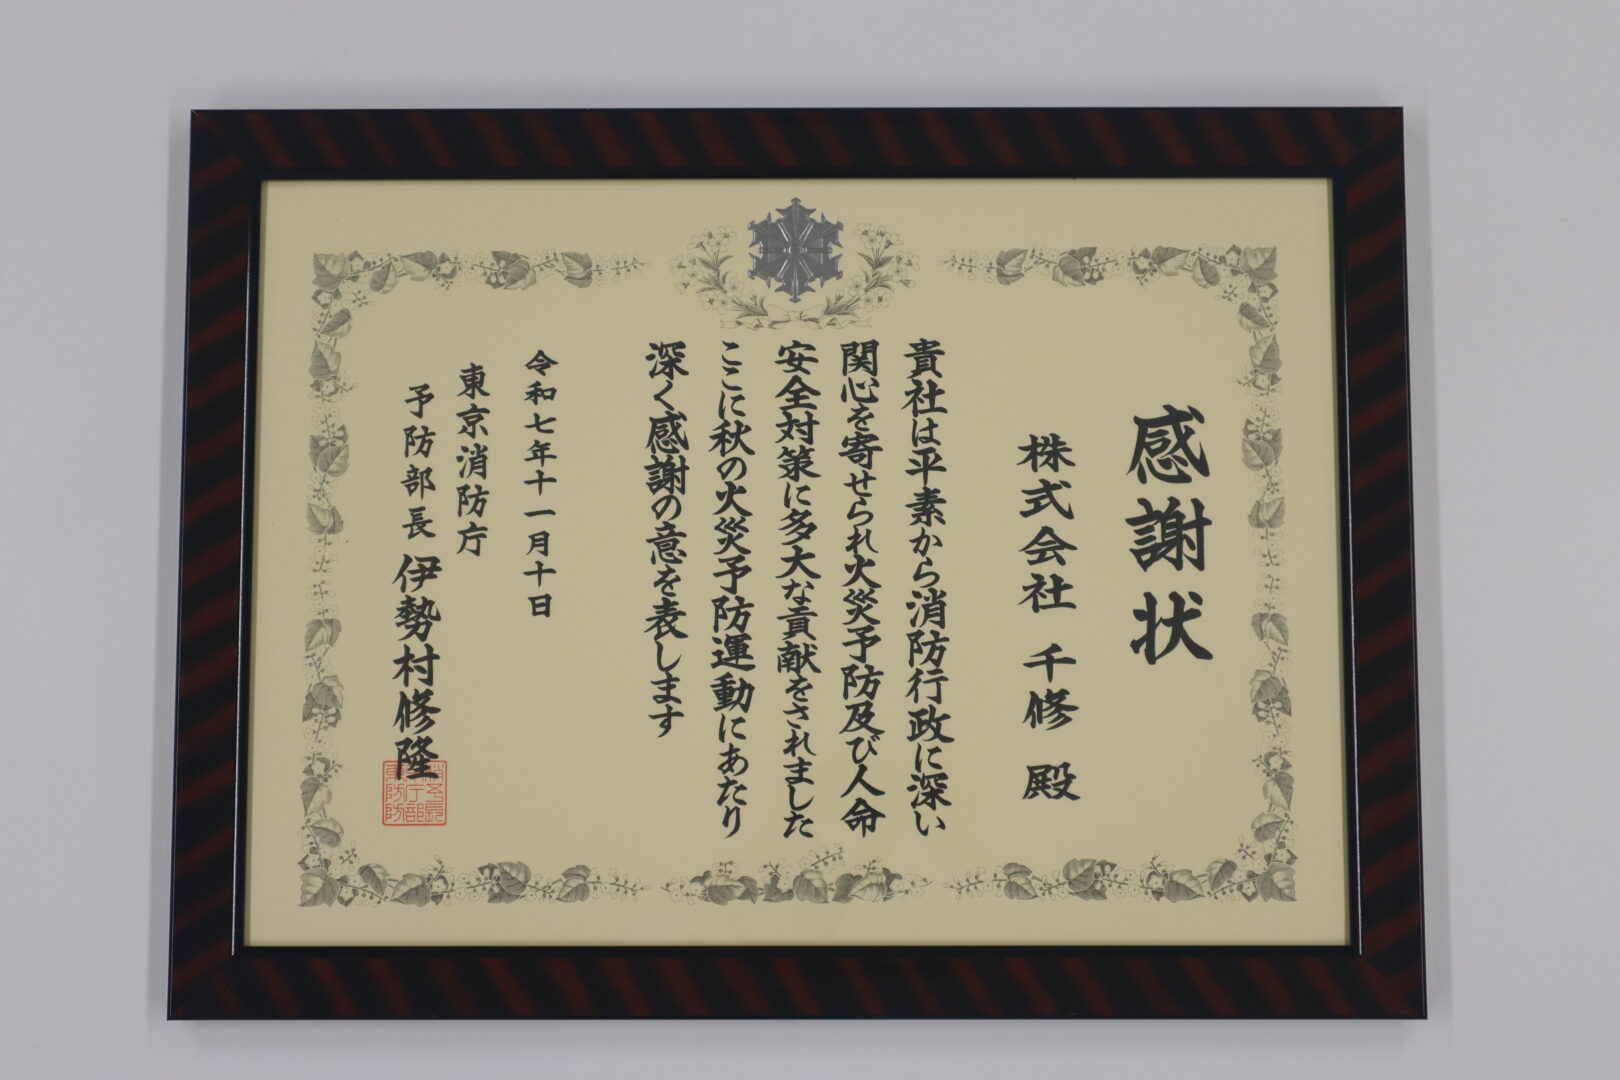 感謝状
株式会社 千修 殿
貴社は平素から消防行政に深い
関心を寄せられ火災予防及び人命
安全対策に多大な貢献をされました
ここに秋の火災予防運動にあたり
深く感謝の意を表します
令和七年十一月十日
東京消防庁
予防部長 伊勢村修隆